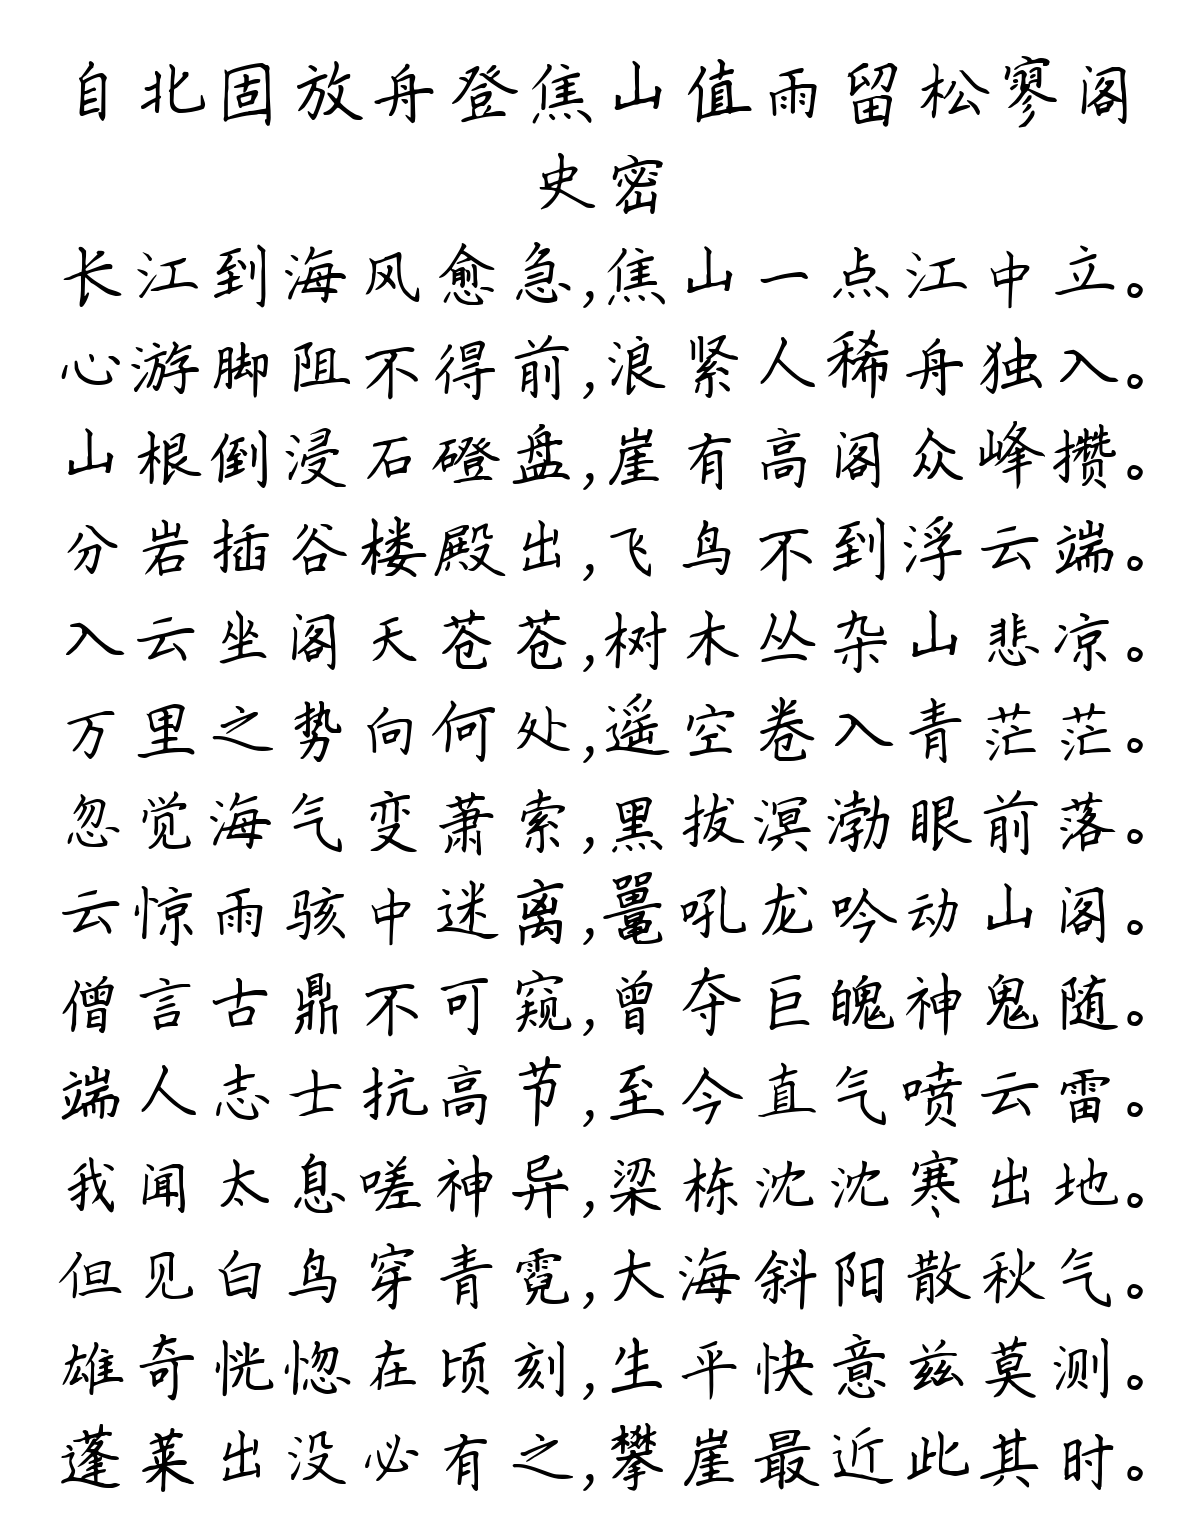 自北固放舟登焦山值雨留松寥阁
史密
长江到海风愈急,焦山一点江中立。
心游脚阻不得前,浪紧人稀舟独入。
山根倒浸石磴盘,崖有高阁众峰攒。
分岩插谷楼殿出,飞鸟不到浮云端。
入云坐阁天苍苍,树木丛杂山悲凉。
万里之势向何处,遥空卷入青茫茫。
忽觉海气变萧索,黑拔溟渤眼前落。
云惊雨骇中迷离,鼍吼龙吟动山阁。
僧言古鼎不可窥,曾夺巨魄神鬼随。
端人志士抗高节,至今直气喷云雷。
我闻太息嗟神异,梁栋沈沈寒出地。
但见白鸟穿青霓,大海斜阳散秋气。
雄奇恍惚在顷刻,生平快意兹莫测。
蓬莱出没必有之,攀崖最近此其时。